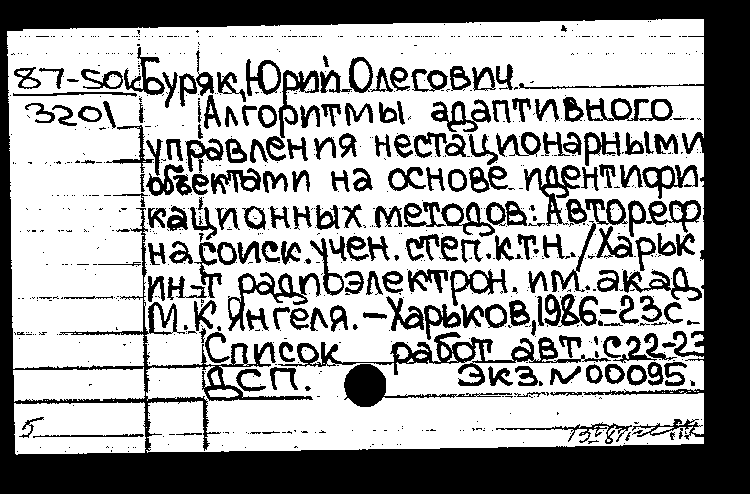 87-50к Буряк, Юрий Олегович.
3201 Алгоритмы адаптивного
управления нестационарными
объектами на основе идентифи-
кационных методов: Автореф.
на соиск. учен. степ. к.т.н. / Харьк.
ин-т радиоэлектрон. им. акад.
М.К. Янгеля. — Харьков, 1986. – 23с.
Список работ авт.: с.22-23
ДСП. Экз. №00095.
5